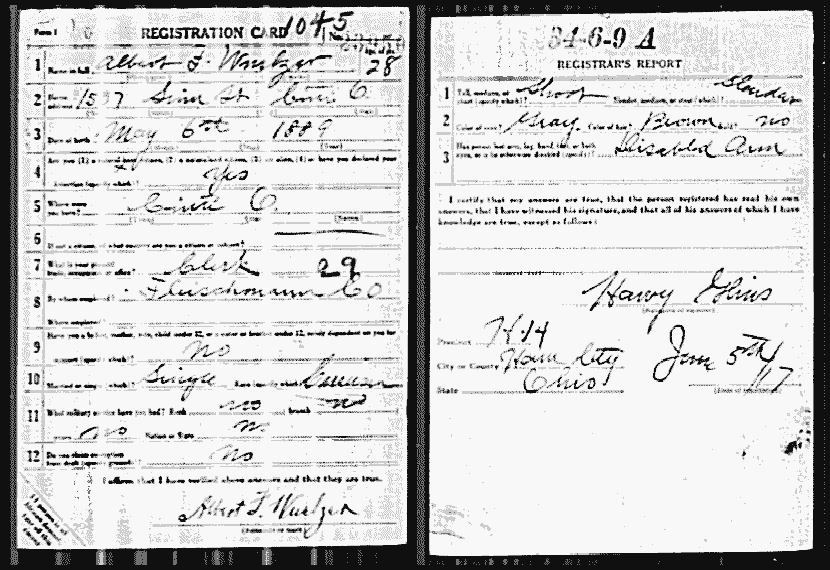 Form 1
REGISTRATION CARD
1045
1 Name in full Albert F. Wurtzer 28
2 1537 St Cinti O.
3 Date of birth May 6th 1889
4 Are you (1) a natural born citizen, (2) a naturalized citizen, (3) an alien, (4) or have you declared your
intention (specify which)? yes
5 Where were you born? Cinti O.
6 If not a citizen, of what country are you a citizen or subject?
7 What is your present trade, occupation or office? Clerk 29
8 By whom employed? Fleischmann Co
Where employed?
9 Have you a father, mother, wife, child under 12, or a sister or brother under 12, solely dependent on you for
support (specify which)? no
10 Married or single (which)? Single Race (specify which)? Caucasian
11 What military service have you had? Rank no branch no
years no Nation or State no
12 Do you claim exemption from draft (specify grounds)? No
I affirm that I have verified above answers and that they are true.
Albert F. Wurtzer
(Signature or mark)
34-6-9 A
REGISTRAR'S REPORT
1 Tall, medium, or short (specify which)? Short Slender, medium, or stout (which)? Slender
2 Color of eyes? Gray Color of hair? Brown Bald? no
3 Has person lost arm, leg, hand, foot, or both eyes, or is he otherwise disabled (specify)? Disabled Arm
I certify that my answers are true, that the person registered has read his own
answers, that I have witnessed his signature, and that all of his answers of which I have
knowledge are true, except as follows:
Harry
(Signature of registrar)
Precinct H-14
City or County Ham City
State Ohio
June 5th/17
(Date of registration)